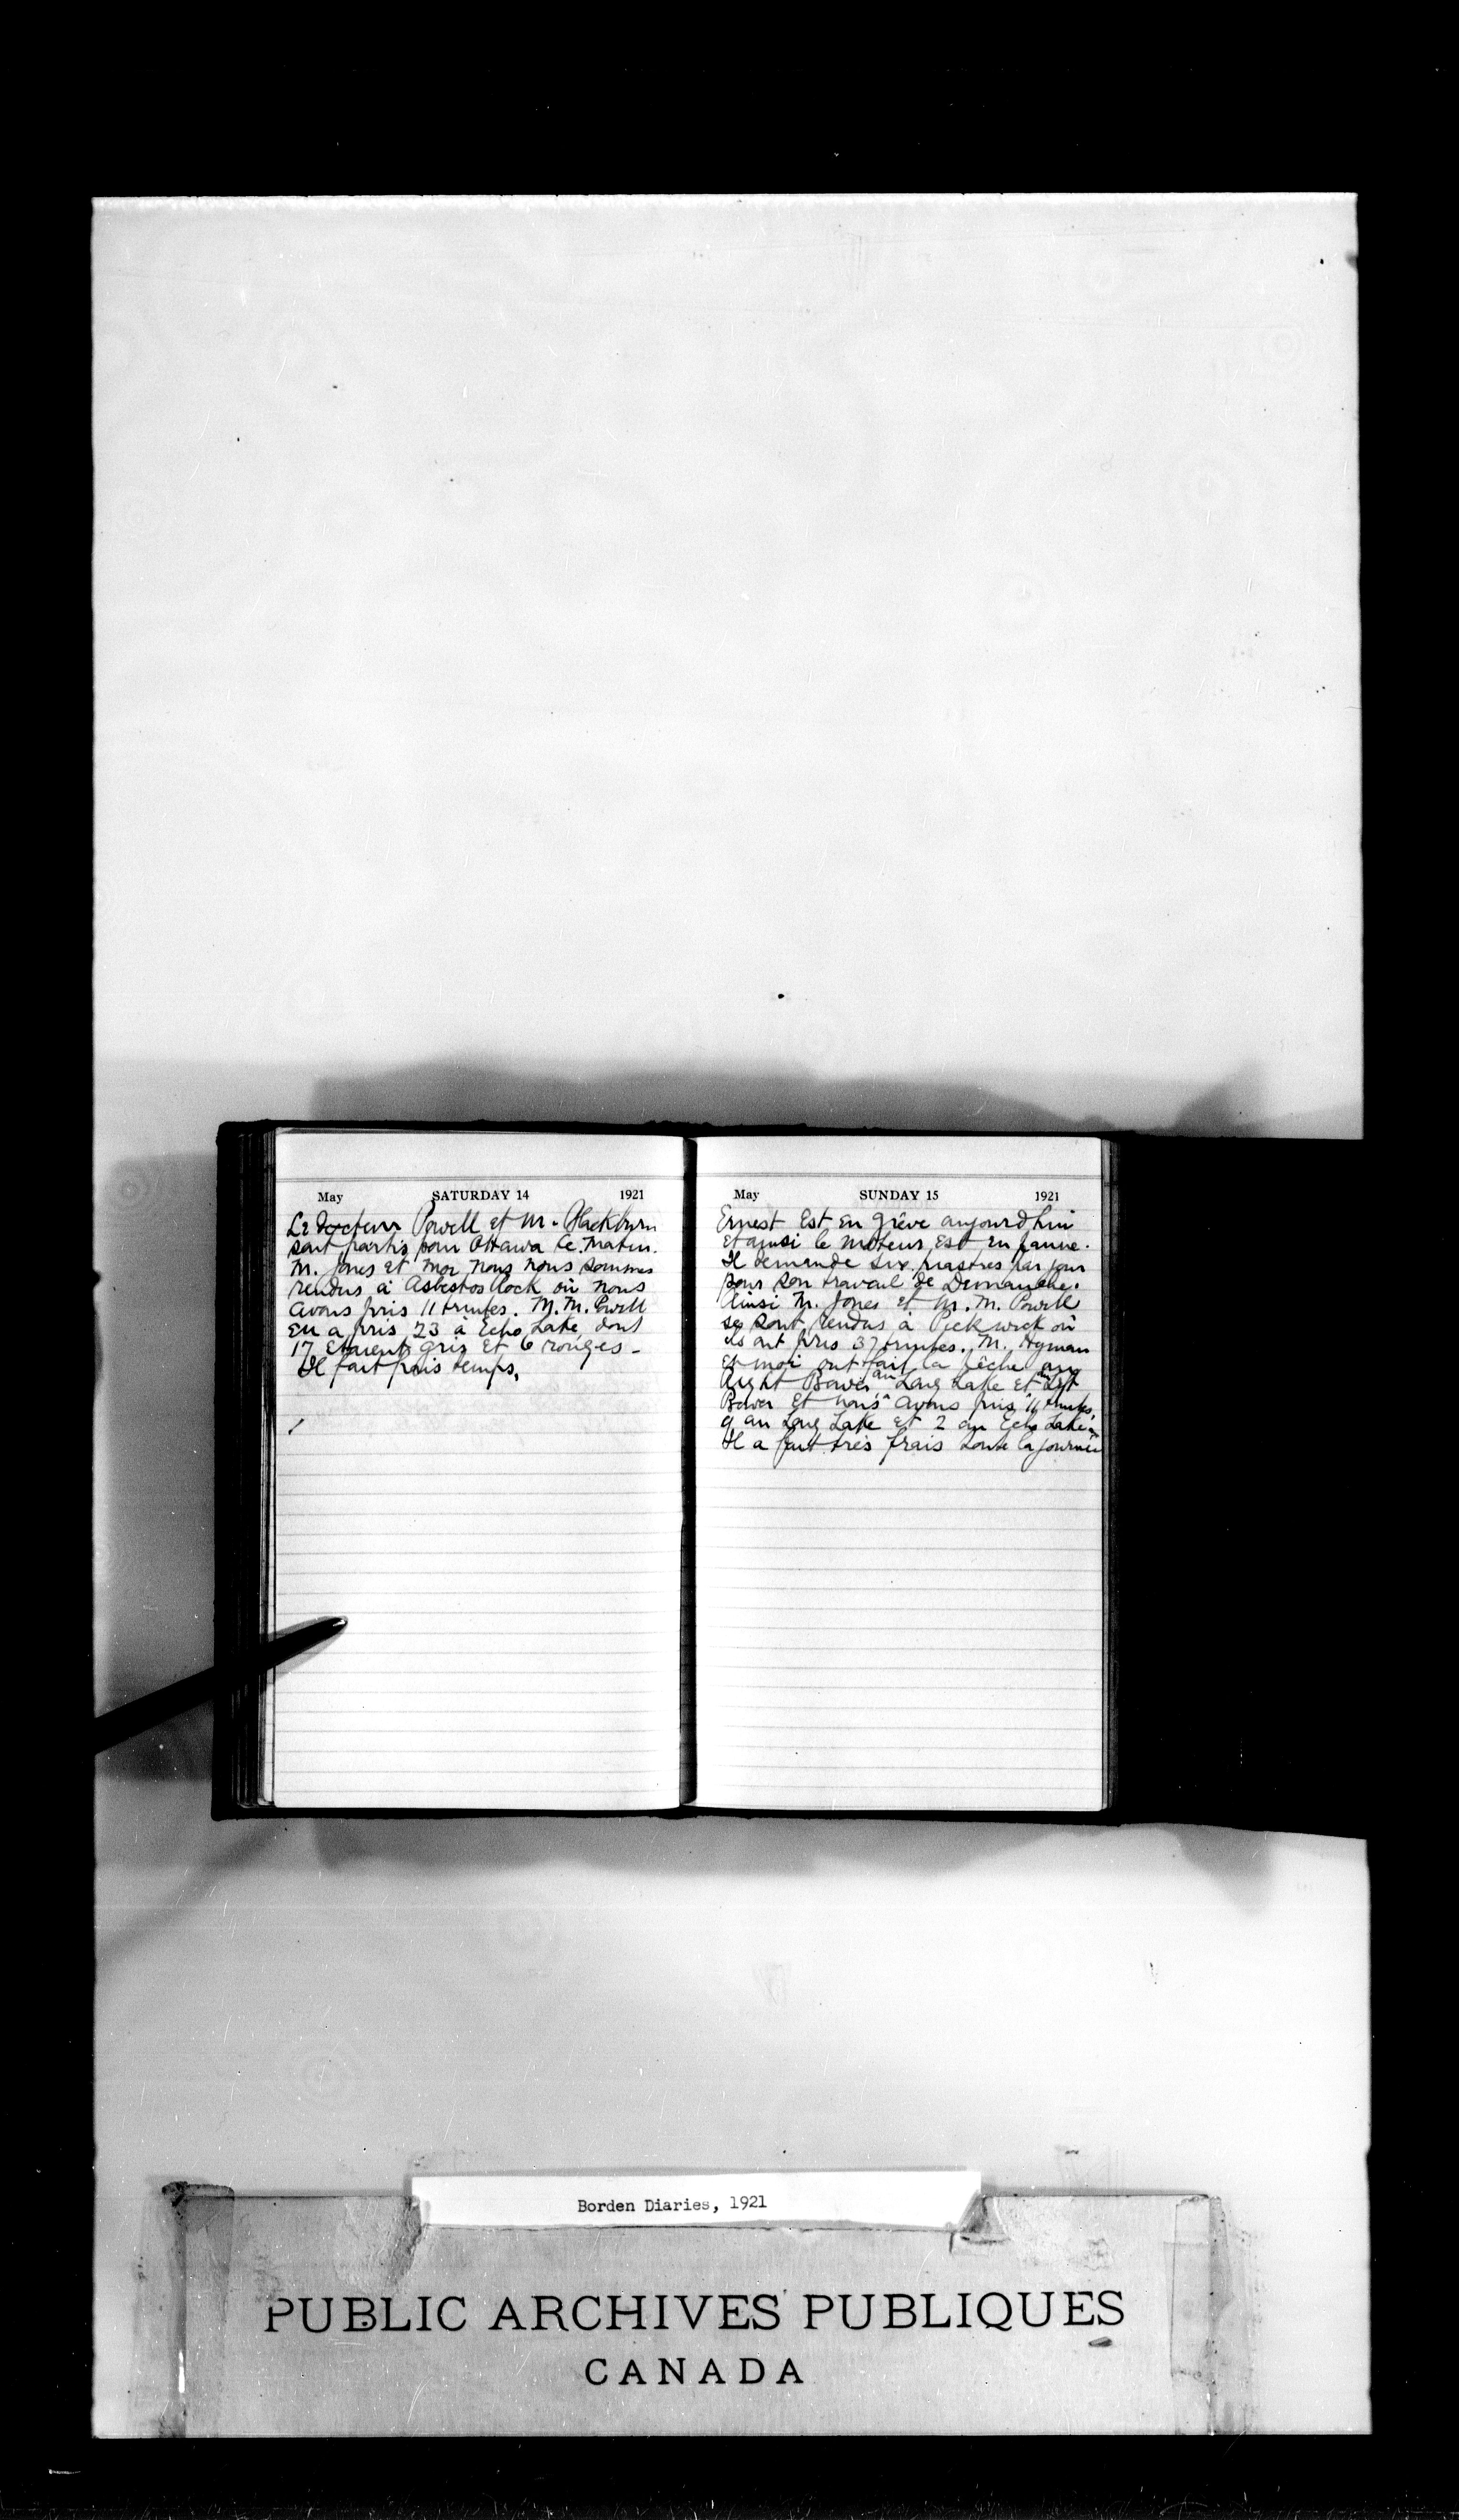 May SATURDAY 14 1921
Le docteur Powell et M. Blackburn
sont partis pour Ottawa ce matin.
M. Jones et moi nous nous sommes
rendus à Asbestos Rock où nous
avons pris 11 truites. M. M. Powell
en a pris 23 à Echo Lake, dont
17 etaient gris et 6 rouges -
Il fait frais temps.
May SUNDAY 15 1921
Ernest est en grève aujourdhui
et ainsi le moteur est en panne.
Il demande six piastres par jour
pour son travail de Dimanche.
Ainsi M. Jones et M. M. Powell
se sont rendus à Pickwick où
ils ont pris 37 truites. M. Hyman
et moi ont fait la pêche au
Right Bower au Long Lake et au Left
Bower et nous avons pris 11 truites,
9 au Long Lake et 2 au Echo Lake.
Il a fait très frais toute la journée
Borden Diaries, 1921
PUBLIC ARCHIVES PUBLIQUES
CANADA